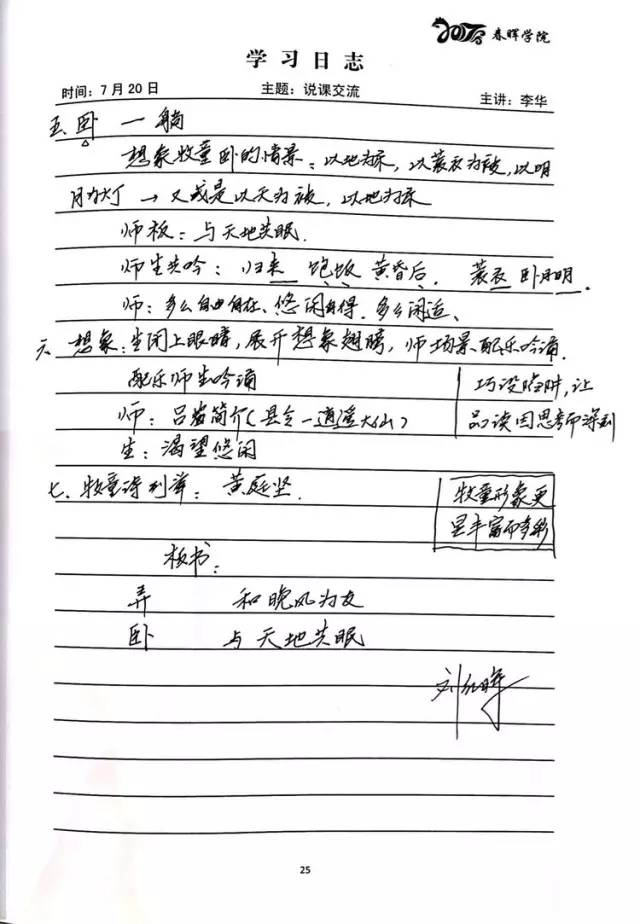 2017 春晖学院
学习日志
时间：7月20日 主题：说课交流 主讲：李华
五、卧 — 躺
想象牧童卧的情景：以地为床，以蓑衣为被，以明
月为灯 → 又或是以天为被，以地为床
师板：与天地共眠.
师生共吟：归来 饱饭 黄昏后. 蓑衣 卧月明.
师：多么自由自在、悠闲自得. 多么闲适、
六、想象：生闭上眼睛，展开想象翅膀，师场景、配乐吟诵.
配乐师生吟诵
巧设陷阱，让
师：吕岩简介（县令—逍遥大仙）
品读因思考而深刻
生：渴望悠闲
七、牧童诗列举：黄庭坚.
牧童形象更
显丰富而多彩
板书：
弄 和晚风为友
卧 与天地共眠
25